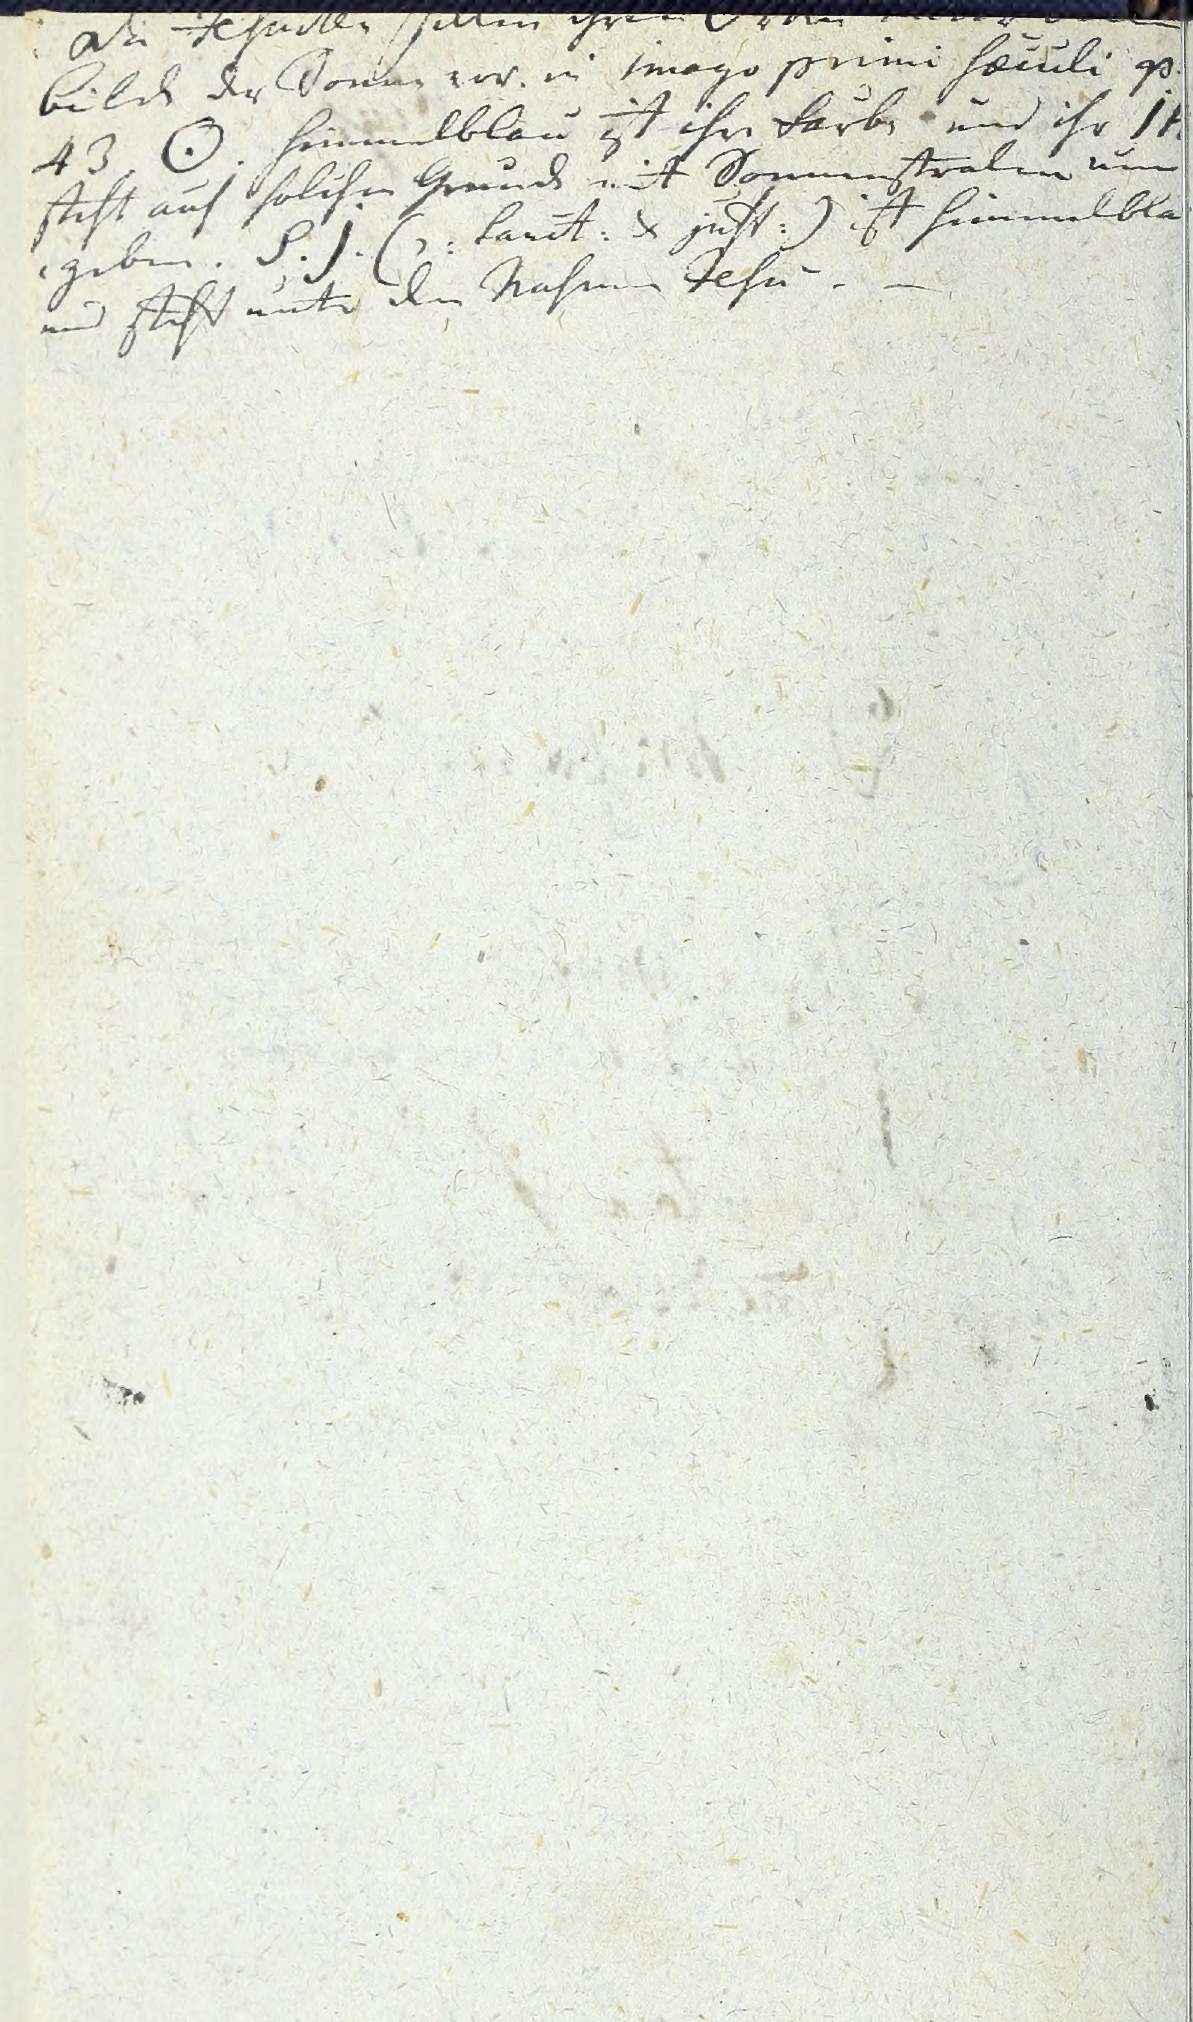 Die Jesuiten stellen ihren Orden unter dem
bilde der Sonne vor. in imago primi sæculi p.
43 ☉. himmelblau ist ihre Farbe und ihr IH
steht auf solchem Grund mit Sonnenstralen um
geben. S. J. (ɔ: sanct: & just:) ist himmelbla
und steht unter dem Nahmen Jesu. —